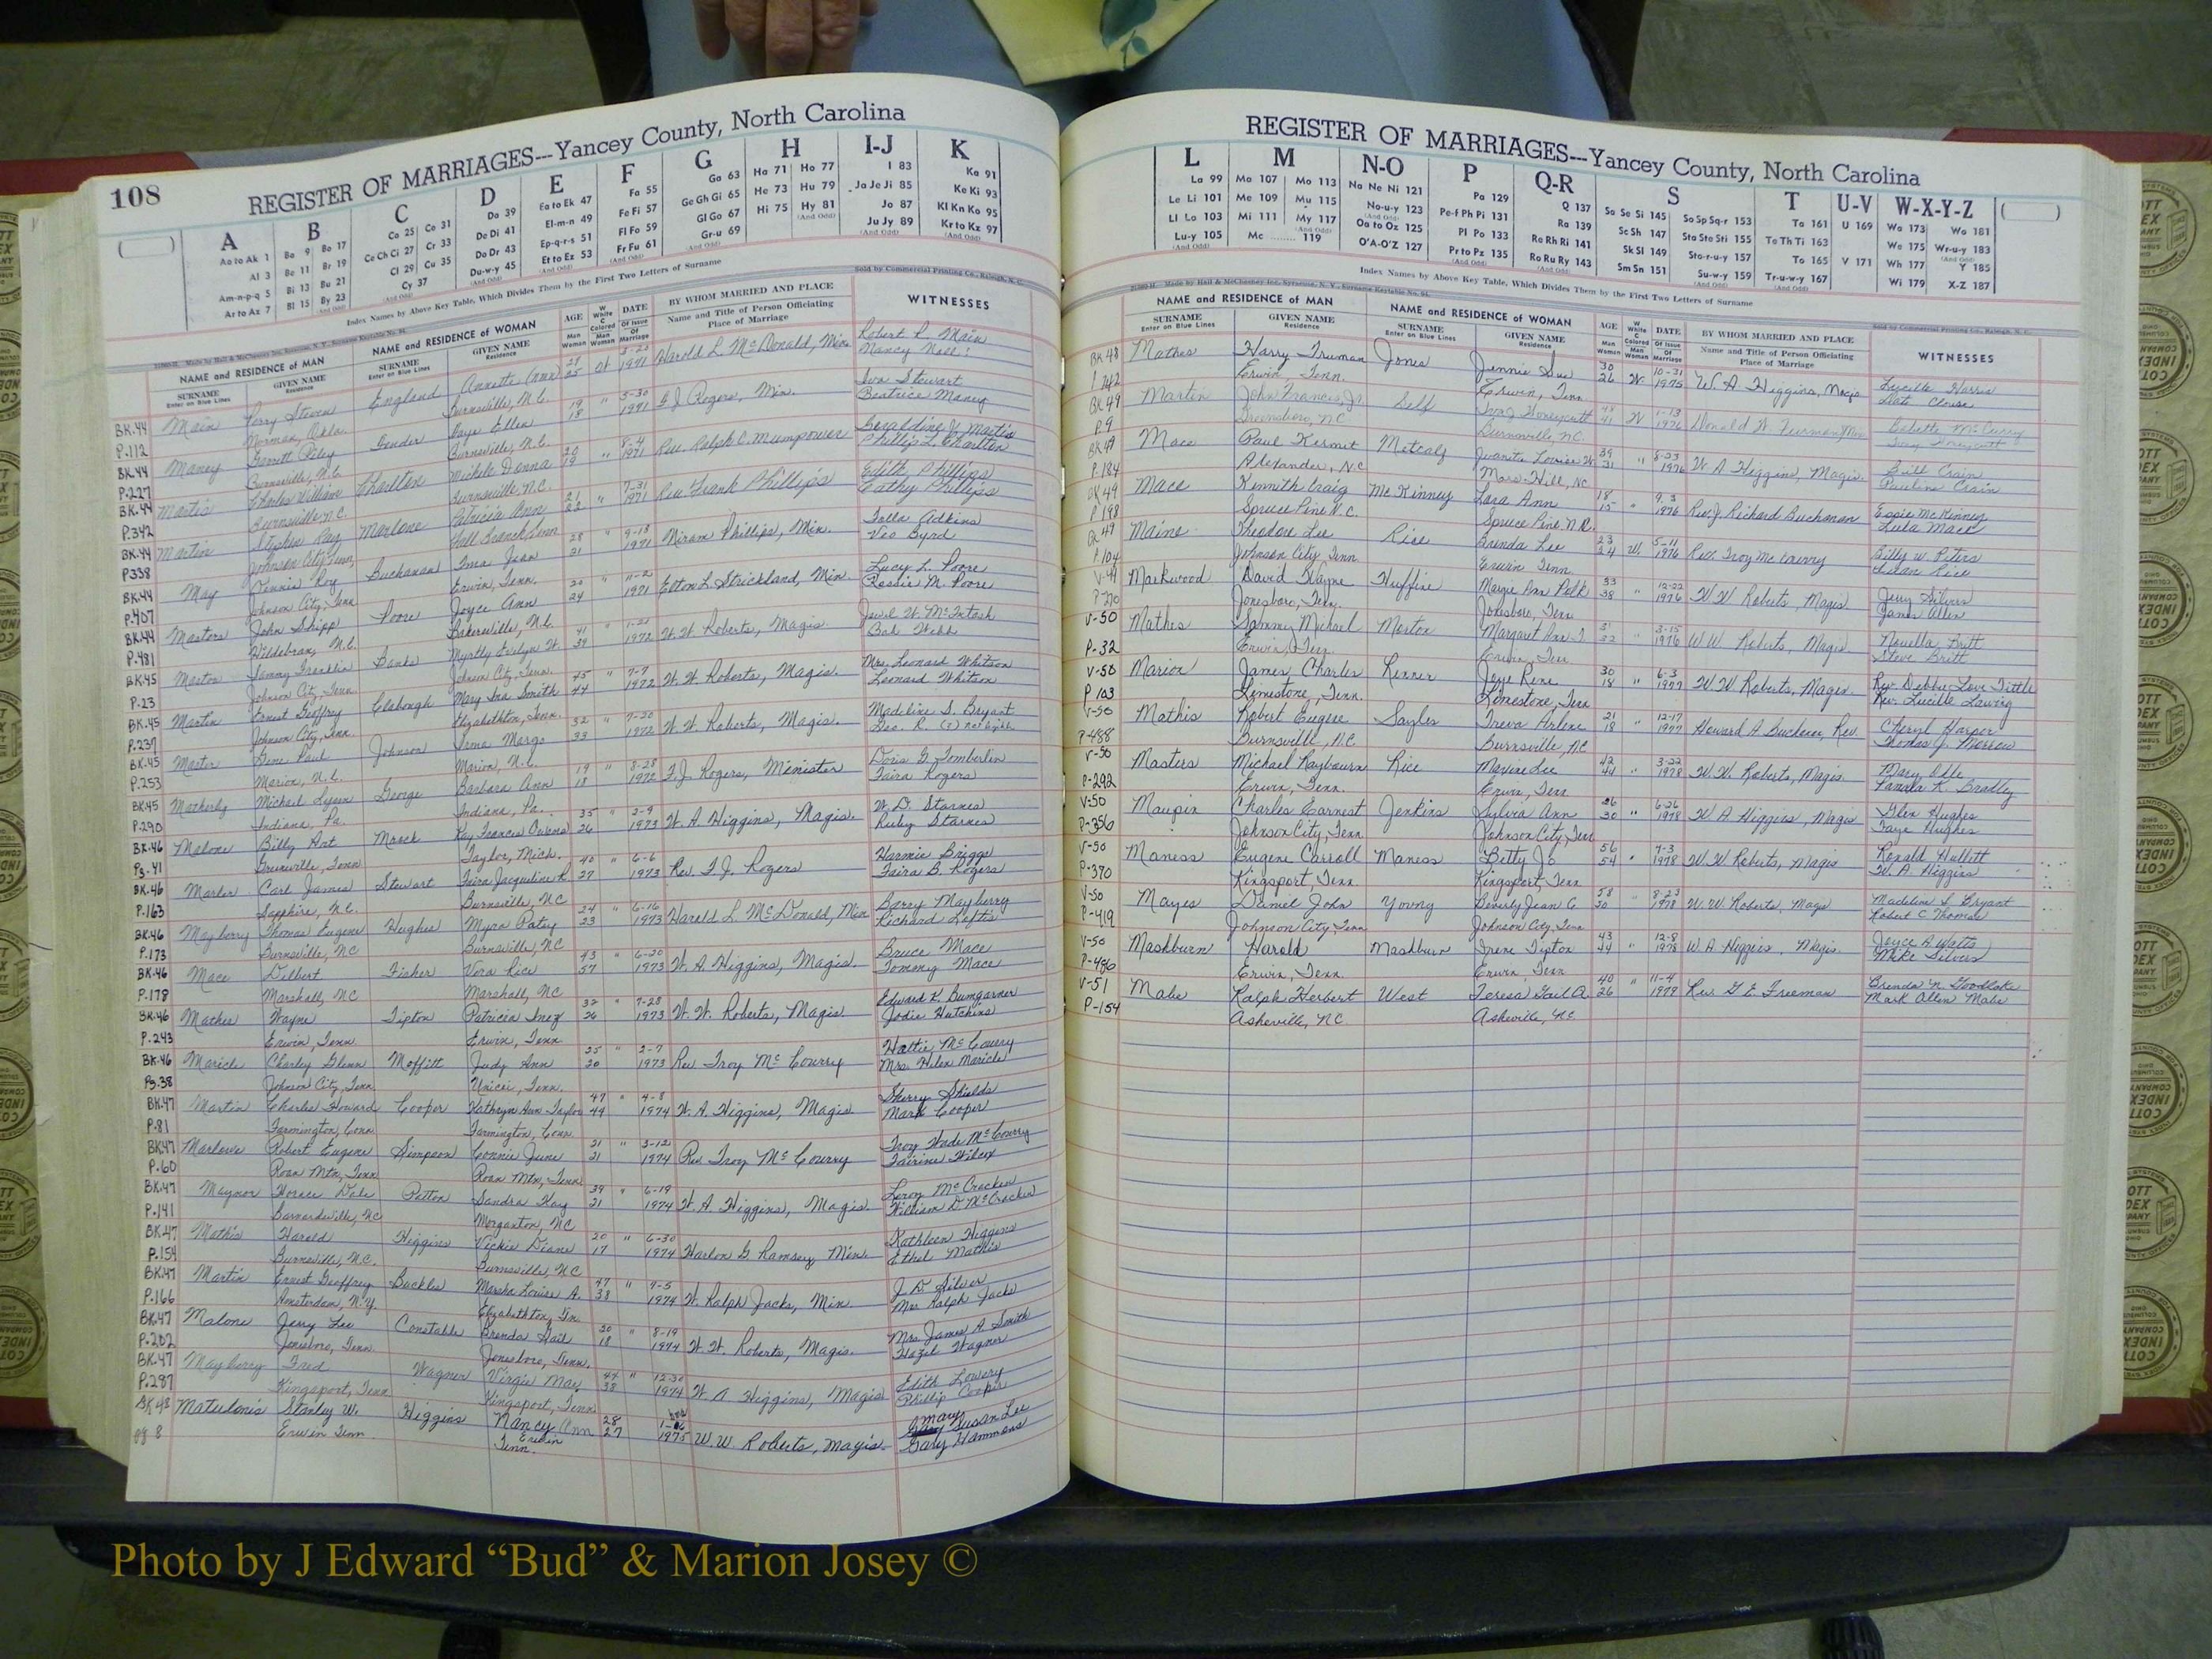 108
REGISTER OF MARRIAGES---Yancey County, North Carolina
A B C D E F G H I-J K
Aa to Ak 1 Ba 9 Bo 17 Ca 25 Co 31 Da 39 Ea to Ek 47 Fa 55 Ga 63 Ha 71 Ho 77 I 83 Ka 91
Al 3 Be 11 Br 19 Ce Ch Ci 27 Cr 33 De Di 41 El-m-n 49 Fe Fi 57 Ge Gh Gi 65 He 73 Hu 79 Ja Je Ji 85 Ke Ki 93
Am-n-p-q 5 Bi 13 Bu 21 Cl 29 Cu 35 Do Dr 43 Ep-q-r-s 51 Fl Fo 59 Gl Go 67 Hi 75 Hy 81 Jo 87 Kl Kn Ko 95
Ar to Az 7 Bl 15 By 23 Cy 37 Du-w-y 45 Et to Ez 53 Fr Fu 61 Gr-u 69 Ju Jy 89 Kr to Kz 97
Index Names by Above Key Table, Which Divides Them by the First Two Letters of Surname
Sold by Commercial Printing Co., Raleigh, N. C.
NAME and RESIDENCE of MAN NAME and RESIDENCE of WOMAN AGE DATE BY WHOM MARRIED AND PLACE WITNESSES
SURNAME Enter on Blue Lines GIVEN NAME Residence SURNAME Enter on Blue Lines GIVEN NAME Residence Man Woman W White C Colored Man Woman Of Issue Of Marriage Name and Title of Person Officiating Place of Marriage
BK.44 Main Perry Steven England Annette Ann 25 W 1971 Harold L. McDonald, Min. Robert L. Main
P.112 Norman, Okla. Burnsville, N.C. Nancy
BK.44 Maney Garrett Riley Faye Ellen 19 18 " 5-30 1971 F.J. Rogers, Min. Iva Stewart
P.227 Burnsville, N.C. Burnsville, N.C. Beatrice Maney
BK.44 Martin Charles William Charlton Michele Donna 20 19 " 8-4 1971 Rev. Ralph C. Mumpower Geraldine Y. Martin
P.342 Burnsville, N.C. Burnsville, N.C. Phillip L. Charlton
BK.44 Martin Stephen Ray Patricia Ann 21 23 " 7-31 1971 Rev. Frank Phillips Edith Phillips
P338 Johnson City, Tenn. Cathy Phillips
BK.44 May Dennis Roy Buchanan Jean 28 21 " 9-18 1971 Hiram Phillips, Min. Adkins
P.407 Johnson City, Tenn. Erwin, Tenn. Veo Byrd
BK.44 Masters John Skipp Poore Joyce Ann 20 24 " 11-2 1971 Elton L. Strickland, Min. Lucy L. Poore
P.481 Hildebran, N.C. Bakersville, N.C. M. Poore
BK.45 Sammy Franklin Banks Myrtle Evelyn W. 41 39 " 1972 W.W. Roberts, Magis. Jewel W. McIntosh
P.23 Johnson City, Tenn. Johnson City, Tenn. Bob Webb
BK.45 Martin Ernest Geoffry Clabough Mary Ina Smith 45 44 " 7-7 1972 W.W. Roberts, Magis. Mrs. Leonard Whitson
P.237 Johnson City, Tenn. Elizabethton, Tenn. Leonard Whitson
BK.45 Gene Paul Johnson Margo 32 33 " 7-20 1972 W.W. Roberts, Magis. Madeline S. Bryant
P.253 Marion, N.C. Marion, N.C. Geo. R. (?) not legible
BK.45 Michael George Barbara Ann 19 18 " 8-28 1972 F.J. Rogers, Minister Doris G. Tomberlin
P.290 Indiana, Pa. Indiana, Pa. Faira Rogers
BK.46 Malone Billy Art Mosck Kay Frances Owens 35 26 " 2-9 1973 W.A. Higgins, Magis. W.D. Starnes
Pg.41 Greenville, Tenn. Taylor, Mich. Ruby Starnes
BK.46 Marler Carl James Stewart Faira Jacqueline R. 40 27 " 6-6 1973 Rev. F.J. Rogers Harmie Briggs
P.163 Sapphire, N.C. Burnsville, NC Faira B. Rogers
BK.46 Mayberry Thomas Eugene Hughes Myra Patsy 24 23 " 6-16 1973 Harold L. McDonald, Min. Barry Mayberry
P.173 Burnsville, NC Burnsville, NC Richard Loftis
BK.46 Mace Delbert Fisher Vera Rice 43 57 " 6-20 1973 W.A. Higgins, Magis. Bruce Mace
P.178 Marshall, NC Marshall, NC Tommy Mace
BK.46 Mathes Wayne Tipton Patricia Inez 32 26 " 7-28 1973 W.W. Roberts, Magis. Edward K. Bumgarner
P.243 Erwin, Tenn. Erwin, Tenn. Jodie Hutchins
BK.46 Maricle Charley Glenn Moffitt Judy Ann 25 20 " 2-7 1973 Rev Troy McCourry Hattie McCourry
Pg.38 Johnson City, Tenn. Unicoi, Tenn. Mrs. Helen Maricle
BK.47 Martin Charles Howard Cooper Kathryn Ann Taylor 47 44 " 4-8 1974 W.A. Higgins, Magis. Sherry Shields
P.81 Farmington, Conn. Farmington, Conn. Mark Cooper
BK47 Marlowe Robert Eugene Simpson Connie June 21 21 " 3-12 1974 Rev Troy McCourry Troy Wade McCourry
P.60 Roan Mtn, Tenn Roan Mtn, Tenn Fairine Wilcox
BK.47 Maynor Horace Dale Patton Sandra Kay 39 21 " 6-19 1974 W.A. Higgins, Magis. Leroy McCracken
P.141 Barnardsville, NC Morganton, NC William D. McCracken
BK.47 Mathis Harold Higgins Vickie Diane 20 17 " 6-30 1974 Harlon G. Ramsey, Min. Kathleen Higgins
P.154 Burnsville, N.C. Burnsville, NC Ethel Mathis
BK.47 Martin Ernest Geoffrey Buckles Marsha Louise A. 47 38 " 7-5 1974 W. Ralph Jacks, Min J.D. Silver
P.166 Amsterdam, N.Y. Elizabethton, Tn. Mrs Ralph Jacks
BK.47 Malone Jerry Lee Constable Brenda Gail 20 18 " 8-19 1974 W.W. Roberts, Magis. Mrs. James A. Smith
P.202 Jonesboro, Tenn. Jonesboro, Tenn. Hazel Wagner
BK.47 Mayberry Fred Wagner Virgie Mae 44 38 " 12-30 1974 W.A. Higgins, Magis Edith Lowery
P.287 Kingsport, Tenn Kingsport, Tenn Phillip Cooper
BK 48 Matudonis Stanley W. Higgins Nancy Ann 28 27 1975 W.W. Roberts, Magis. Mary Susan Lee
pg 8 Erwin Tenn. Erwin Tenn. Gary Hammons
REGISTER OF MARRIAGES---Yancey County, North Carolina
L M N-O P Q-R S T U-V W-X-Y-Z
La 99 Ma 107 Mo 113 Na Ne Ni 121 Pa 129 Q 137 Sa Se Si 145 So Sp Sq-r 153 Ta 161 U 169 Wa 173 Wo 181
Le Li 101 Me 109 Mu 115 No-u-y 123 Pe-f Ph Pi 131 Ra 139 Sc Sh 147 Sta Ste Sti 155 Te Th Ti 163 We 175 Wr-u-y 183
Ll Lo 103 Mi 111 My 117 Oa to Oz 125 Pl Po 133 Re Rh Ri 141 Sk Sl 149 Sto-r-u-y 157 To 165 V 171 Wh 177 Y 185
Lu-y 105 Mc 119 O'A-O'Z 127 Pr to Pz 135 Ro Ru Ry 143 Sm Sn 151 Su-w-y 159 Tr-u-w-y 167 Wi 179 X-Z 187
Index Names by Above Key Table, Which Divides Them by the First Two Letters of Surname
Sold by Commercial Printing Co., Raleigh, N. C.
NAME and RESIDENCE of MAN NAME and RESIDENCE of WOMAN AGE DATE BY WHOM MARRIED AND PLACE WITNESSES
SURNAME Enter on Blue Lines GIVEN NAME Residence SURNAME Enter on Blue Lines GIVEN NAME Residence Man Woman W White C Colored Man Woman Of Issue Of Marriage Name and Title of Person Officiating Place of Marriage
BK 48 Mathes Harry Truman Jones Jennie Sue 30 26 W. 10-31 1975 W.A. Higgins, Magis Lucille Harris
P 242 Erwin, Tenn. Erwin, Tenn Clouse
BK 49 Martin John Francis, Jr. Self Honeycutt 41 W 1-13 1976 Donald W. Furman, Min Babette McCurry
P.9 Greensboro, N.C. Burnsville, N.C.
BK 49 Mace Paul Kermit Metcalf Juanita Louise W. 39 31 " 8-23 1976 W A Higgins, Magis. Bill Crain
P.184 Alexander, N.C. Mars-Hill, NC Pauline Crain
BK 49 Mace Kennith Craig McKinney Lara Ann 18 15 " 9-3 1976 Rev. J. Richard Buchanan Essie McKinney
P 198 Spruce Pine N.C. Spruce Pine, N.C. Lula Mace
BK 49 Maine Theodore Lee Rice Brenda Lee 23 24 W. 5-11 1976 Rev. Troy McCourry Billy W. Peters
P.104 Johnson City, Tenn. Erwin Tenn. Susan Rice
V-49 Markwood David Wayne Huffine Margie Ann Polk 33 38 " 12-22 1976 W W Roberts, Magis. Jerry Silvers
P 270 Jonesboro, Tenn. Jonesboro, Tenn James Allen
V-50 Mathes Sammy Michael Morton Margaret Ann T. 32 " 3-15 1976 W W. Roberts, Magis. Novella Britt
P-32 Erwin, Tenn. Erwin, Tenn Steve Britt
V-50 Marion James Charles Renner Joye Rene 30 18 " 6-3 1977 W W Roberts, Magis. Rev. Debbie Love Tittle
P 103 Limestone, Tenn. Limestone, Tenn Rev. Lucille Lawing
V-50 Mathis Robert Eugene Sayles Treva Arlene 21 18 " 12-17 1977 Howard A. Buchanan, Rev. Cheryl Harper
P-488 Burnsville, N.C. Burnsville, NC Thomas J. Morrow
V-50 Masters Michael Raybourn Rice Maxine Lee 42 44 " 3-22 1978 W.W. Roberts, Magis. Mary
P-292 Erwin, Tenn. Erwin, Tenn Pamela K. Bradley
V-50 Maupin Charles Earnest Jenkins Sylvia Ann 26 30 " 6-26 1978 W A Higgins, Magis Glen Hughes
P-356 Johnson City, Tenn Johnson City, Tenn Faye Hughes
V-50 Maness Eugene Carroll Maness Betty Jo 56 54 " 7-3 1978 W.W Roberts, Magis Ronald Hullett
P-370 Kingsport, Tenn. Kingsport, Tenn. W. A. Higgins
V-50 Mayes Daniel John Young Beverly Jean C 58 50 " 8-23 1978 W.W. Roberts, Magis Madeline S. Bryant
P-419 Johnson City, Tenn Johnson City, Tenn Robert C Thomas
V-50 Mashburn Harold Mashburn Irene Tipton 43 44 " 12-8 1978 W.A. Higgins, Magis. Joyce A. Watts
P-486 Erwin, Tenn. Erwin, Tenn Mike Silvers
V-51 Mabe Ralph Herbert West Teresa Gail A. 40 26 " 11-4 1979 Rev. G E. Freeman Brenda N. Goodlake
P-154 Asheville, NC. Asheville, NC Mark Allen Mabe
Photo by J Edward “Bud” & Marion Josey ©